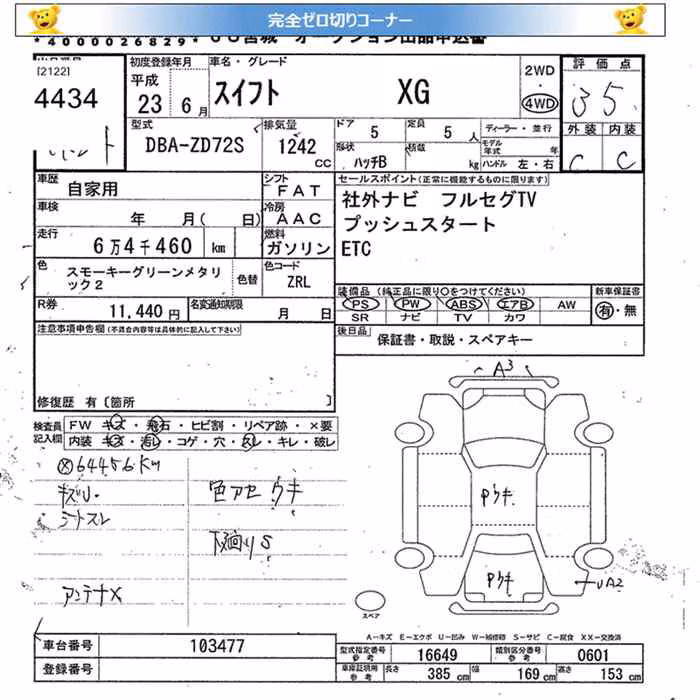 完全ゼロ切りコーナー
*4000026829*
[2122]
4434
初度登録年月
平成
23 6月
車名・グレード
スイフト XG
2WD
4WD
評価点
3 5
外装 内装
C C
型式
DBA-ZD72S
排気量
1242
CC
ドア 5
定員 5 人
形状 ハッチB
積載 kg
ディーラー・並行
モデル年式 年
ハンドル 左・右
車歴
自家用
シフト
FAT
車検
年 月( 日)
冷房
AAC
走行
6万4千460 km
燃料
ガソリン
色
スモーキーグリーンメタリック2
色替
色コード
ZRL
R券
11,440円
名変通知期限
月 日
セールスポイント(正常に機能するものに限ります)
社外ナビ フルセグTV
プッシュスタート
ETC
装備品(純正品に限り○をつけてください)
PS PW ABS エアB AW
SR ナビ TV カワ
新車保証書
有・無
後日品
保証書・取説・スペアキー
注意事項申告欄(不適合内容等は具体的に記入して下さい)
修復歴 有〔箇所 〕
検査員記入欄
FW キズ・飛石・ヒビ割・リペア跡・×要
内装 キズ・汚レ・コゲ・穴・スレ・キレ・破レ
64456km
キズ
シートスレ
色アセ ウキ
下廻りS
アンテナX
A3
Pウキ
Pウキ
UA2
スペア
A-キズ E-エクボ U-凹み W-補修跡 S-サビ C-腐食 XX-交換済
車台番号
103477
登録番号
型式指定番号 参考
16649
類別区分番号 参考
0601
車庫証明用 参考
長さ 385 cm
幅 169 cm
高さ 153 cm